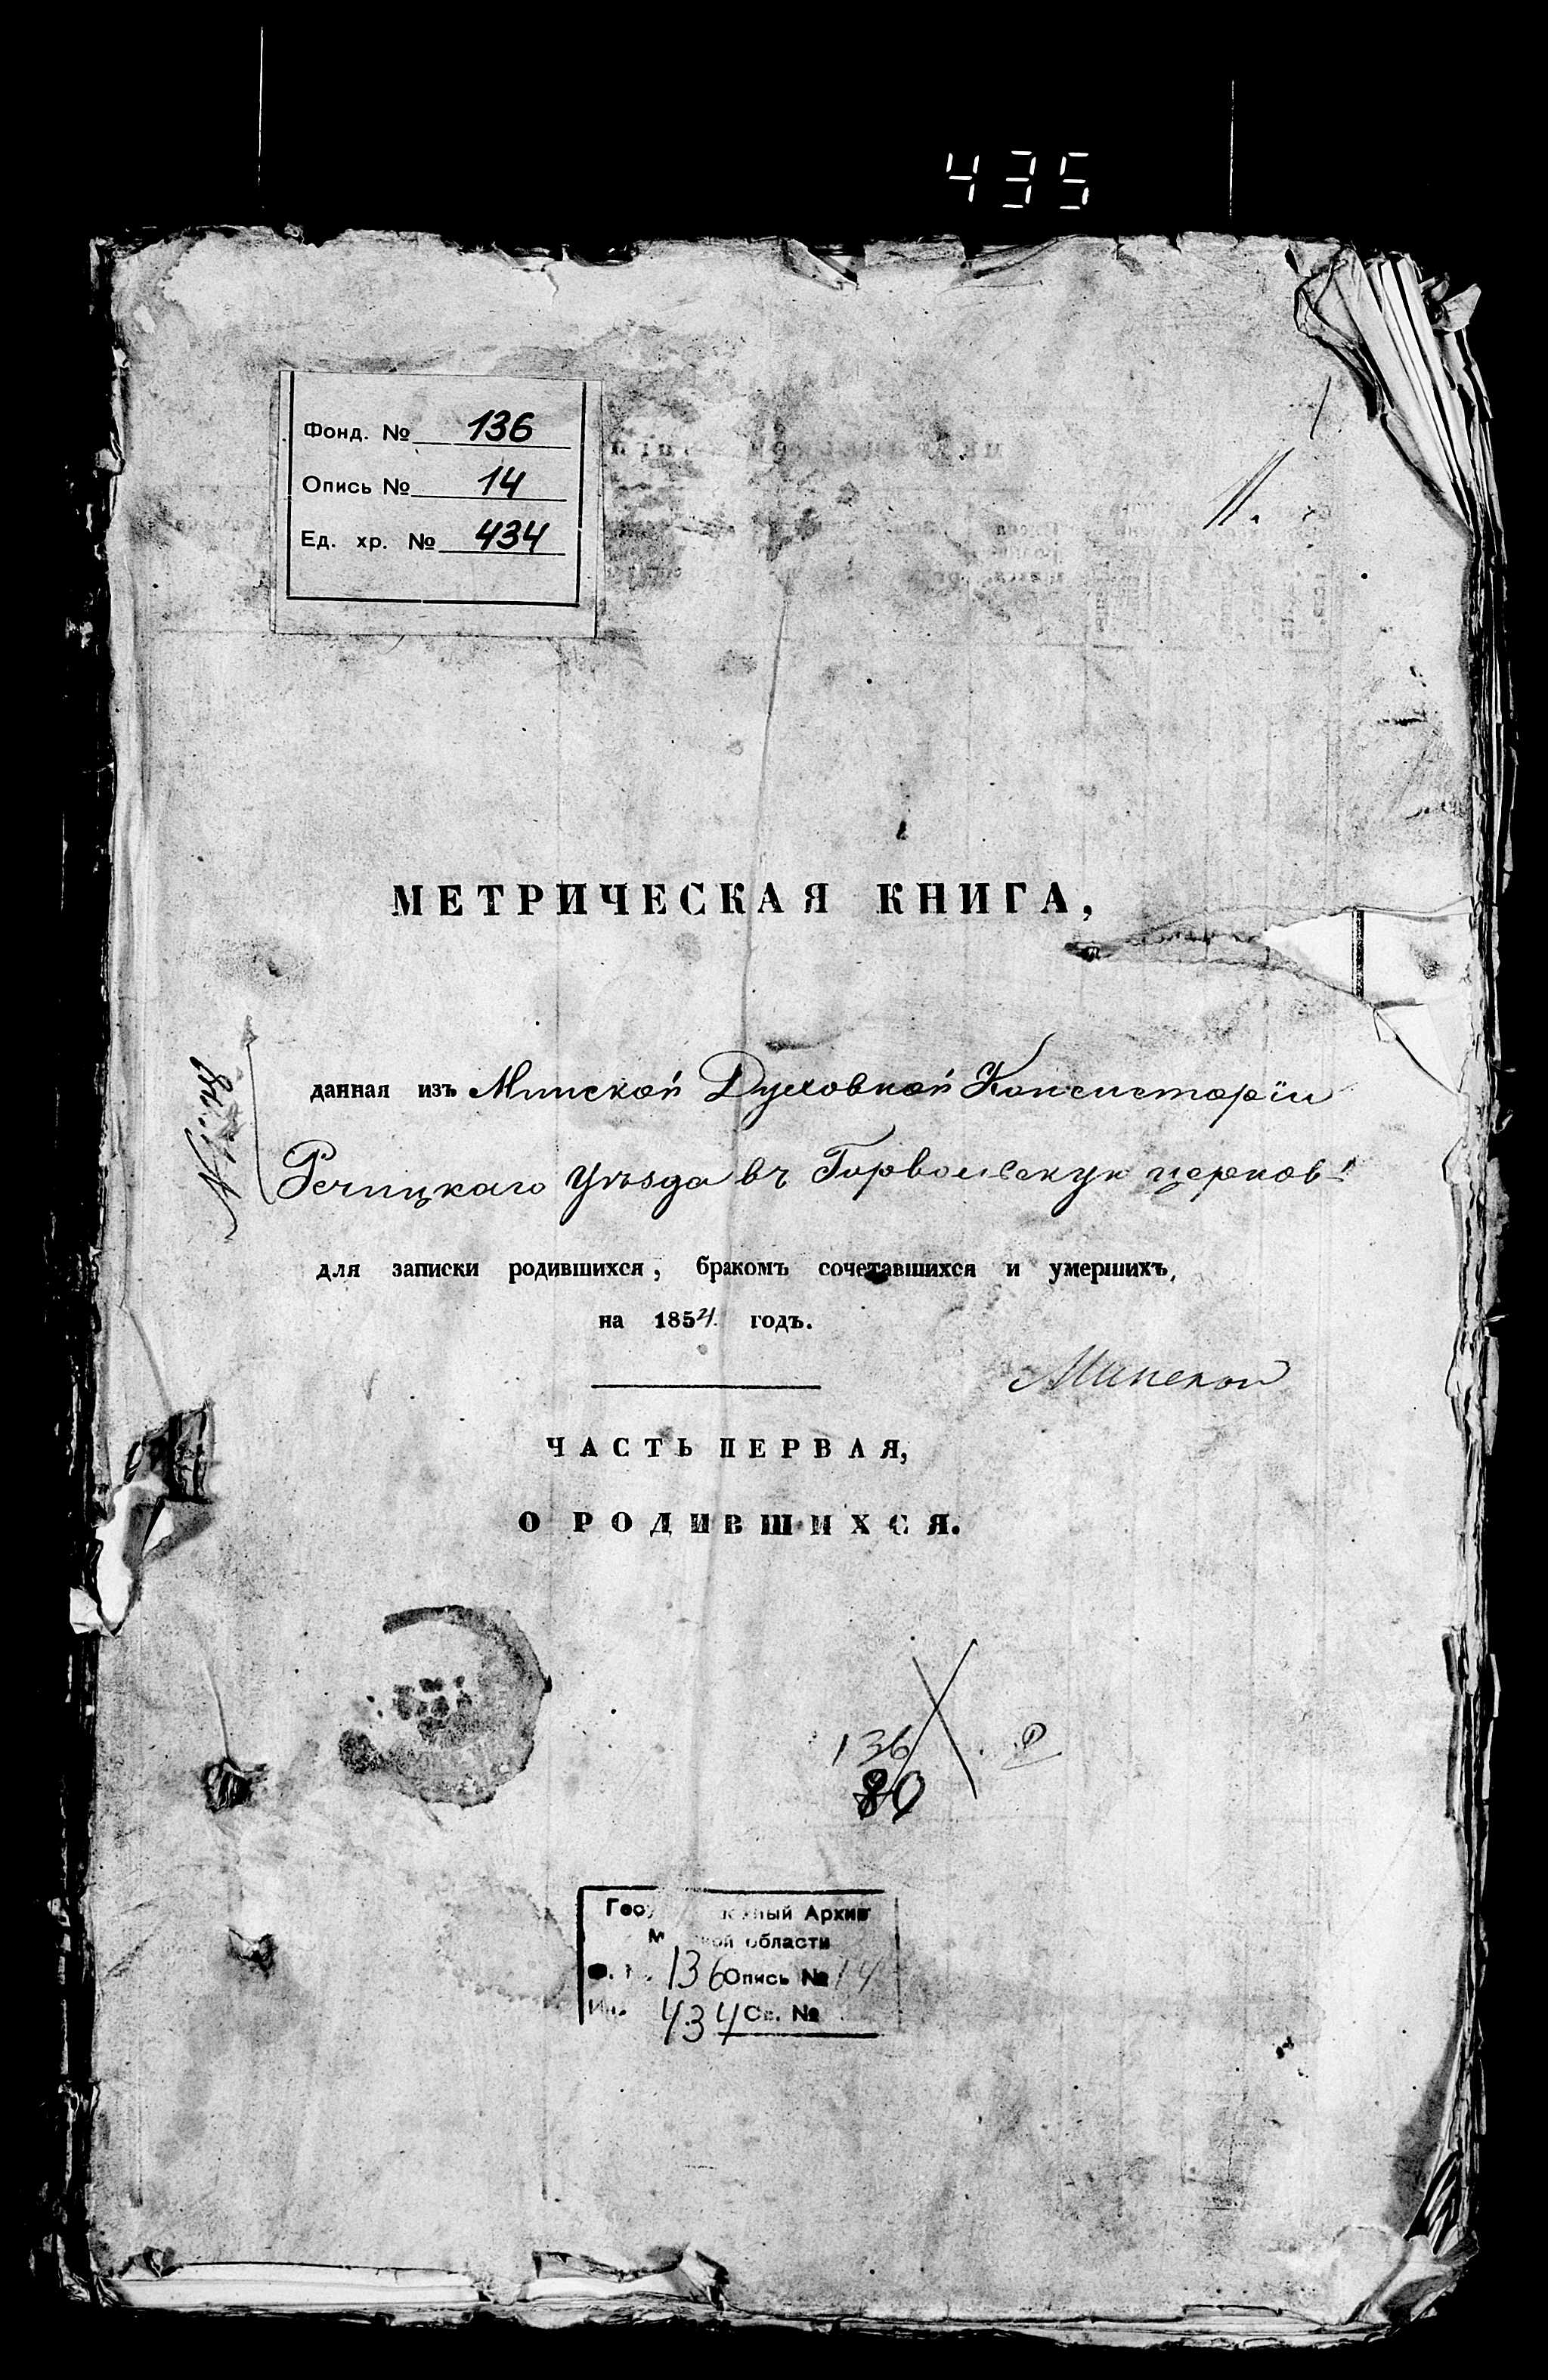 435
Фонд. № 136
Опись № 14
Ед. хр. № 434
11.
МЕТРИЧЕСКАЯ КНИГА,
данная изъ Минской Духовной Консисторіи
Речицкаго Уѣзда въ Горвольскую церковь
для записки родившихся, бракомъ сочетавшихся и умершихъ,
на 1854. годъ.
Минской
ЧАСТЬ ПЕРВАЯ,
О РОДИВШИХСЯ.
136
80
Архив
области
136 Опись № 14
434 Св. №